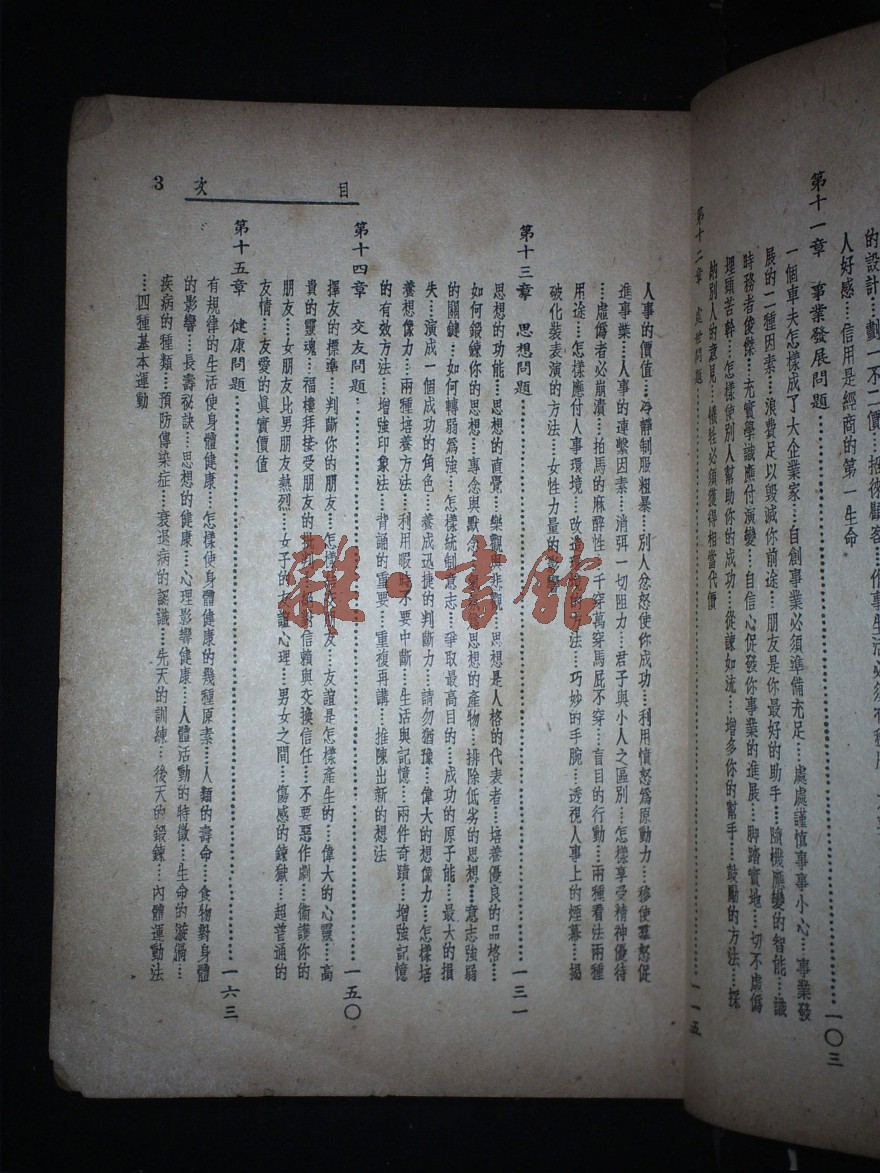 的設計…劃一不二價…招徠顧客…作事生活必須有
人好感…信用是經商的第一生命
第十一章 事業發展問題…一〇三
一個車夫怎樣成了大企業家…自創事業必須準備充足…處處謹慎事事小心…事業發
展的二種因素…浪費足以毀滅你前途…朋友是你最好的助手…隨機應變的智能…識
時務者俊傑…充實學識應付演變…自信心促發你事業的進展…脚踏實地…切不虛僞
埋頭苦幹…怎樣使別人幫助你的成功…從諫如流…增多你的幫手…鼓勵的方法…採
納別人的意見…犧牲必須獲得相當代價
第十二章 處世問題…一一五
目 次 3
人事的價值…冷靜制服粗暴…別人忿怒使你成功…利用憤怒爲原動力…移使羣怒促
進事業…人事的連繫因素…消弭一切阻力…君子與小人之區別…怎樣享受精神優待
…虛僞者必崩潰…拍馬的麻醉性…千穿萬穿馬屁不穿…盲目的行動…兩種看法兩種
用途…怎樣應付人事環境…改進的方法…巧妙的手腕…透視人事上的煙幕…揭
破化裝表演的方法…女性力量的
第十三章 思想問題…一三一
思想的功能…思想的直覺…樂觀與悲觀…思想是人格的代表者…培養優良的品格…
如何鍛鍊你的思想…專念與默念…思想的產物…排除低劣的思想…意志強弱
的關鍵…如何轉弱爲強…怎樣統制意志…爭取最高目的…成功的原子能…最大的損
失…演成一個成功的角色…養成迅捷的判斷力…請勿猶豫…偉大的想像力…怎樣培
養想像力…兩種培養方法…利用暇時不要中斷…生活與記憶…兩件奇蹟…增強記憶
的有效方法…增強印象法…背誦的重要…重複再講…推陳出新的想法
第十四章 交友問題…一五〇
擇友的標準…判斷你的朋友…怎樣友…友誼是怎樣產生的…偉大的心靈…高
貴的靈魂…福樓拜接受朋友的批判…信賴與交換信任…不要惡作劇…衞護你的
朋友…女朋友比男朋友熱烈…女子的友誼心理…男女之間…傷感的鍊獄…超普通的
友情…友愛的眞實價值
第十五章 健康問題…一六三
有規律的生活使身體健康…怎樣使身體健康的幾種原素…人類的壽命…食物對身體
的影響…長壽秘訣…思想的健康…心理影響健康…人體活動的特徵…生命的漩渦…
疾病的種類…預防傳染症…衰退病的認識…先天的訓練…後天的鍛鍊…內體運動法
…四種基本運動
雜·書館